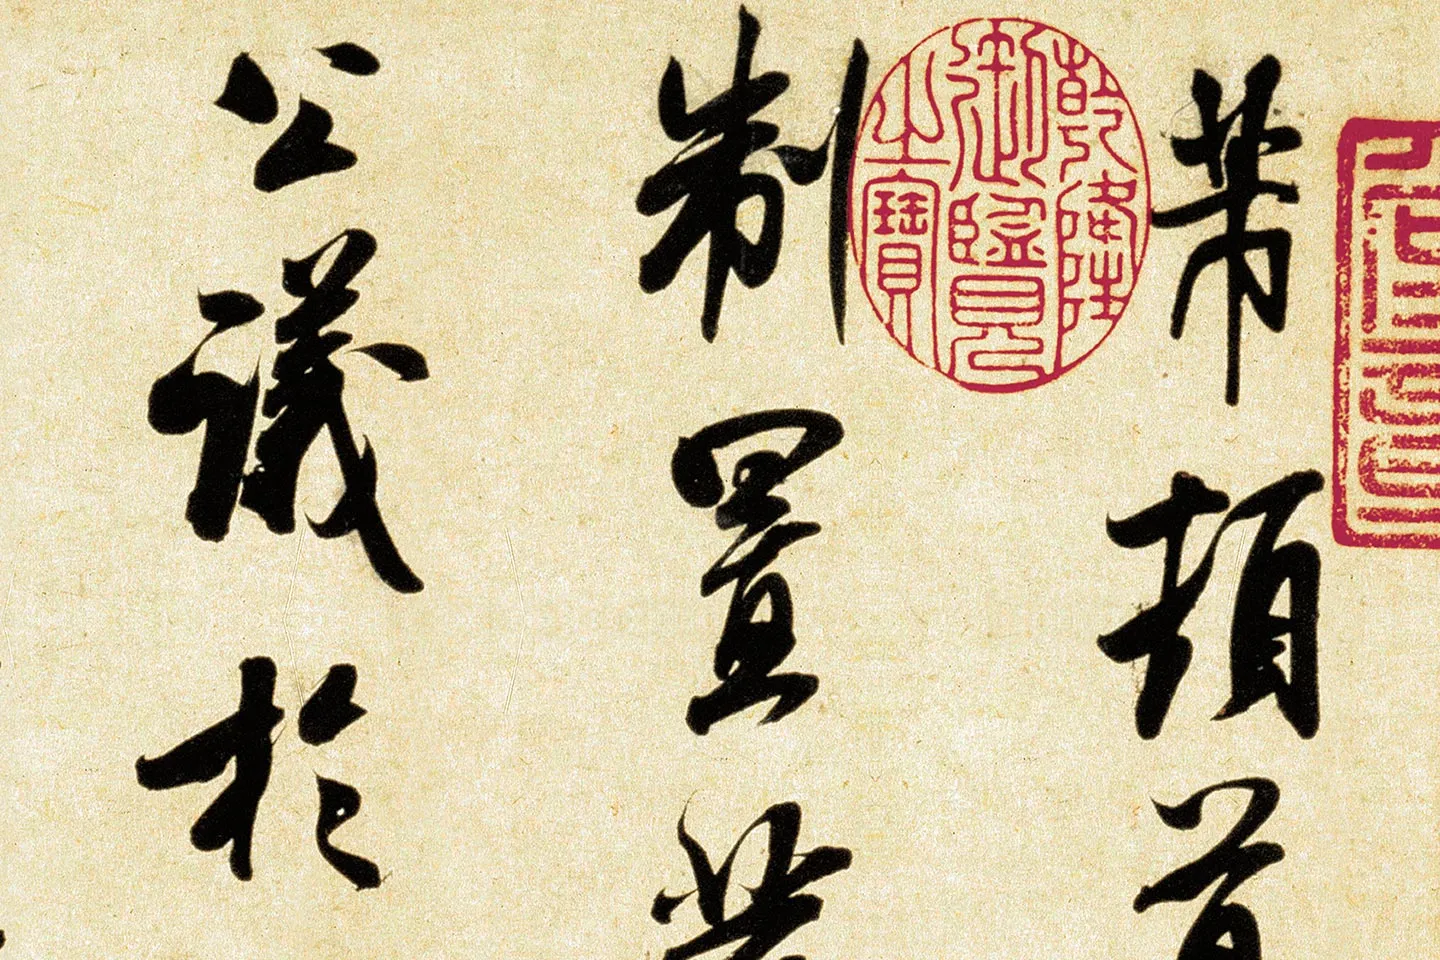 芾頓首
乾隆
御覽
之寶
制置
公議於